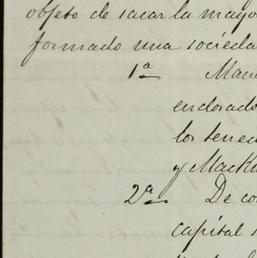 objeto de sacar la mayo
formado una socieda
1ª Man
endorado
los tened
y MacKa
2ª De co
capital s